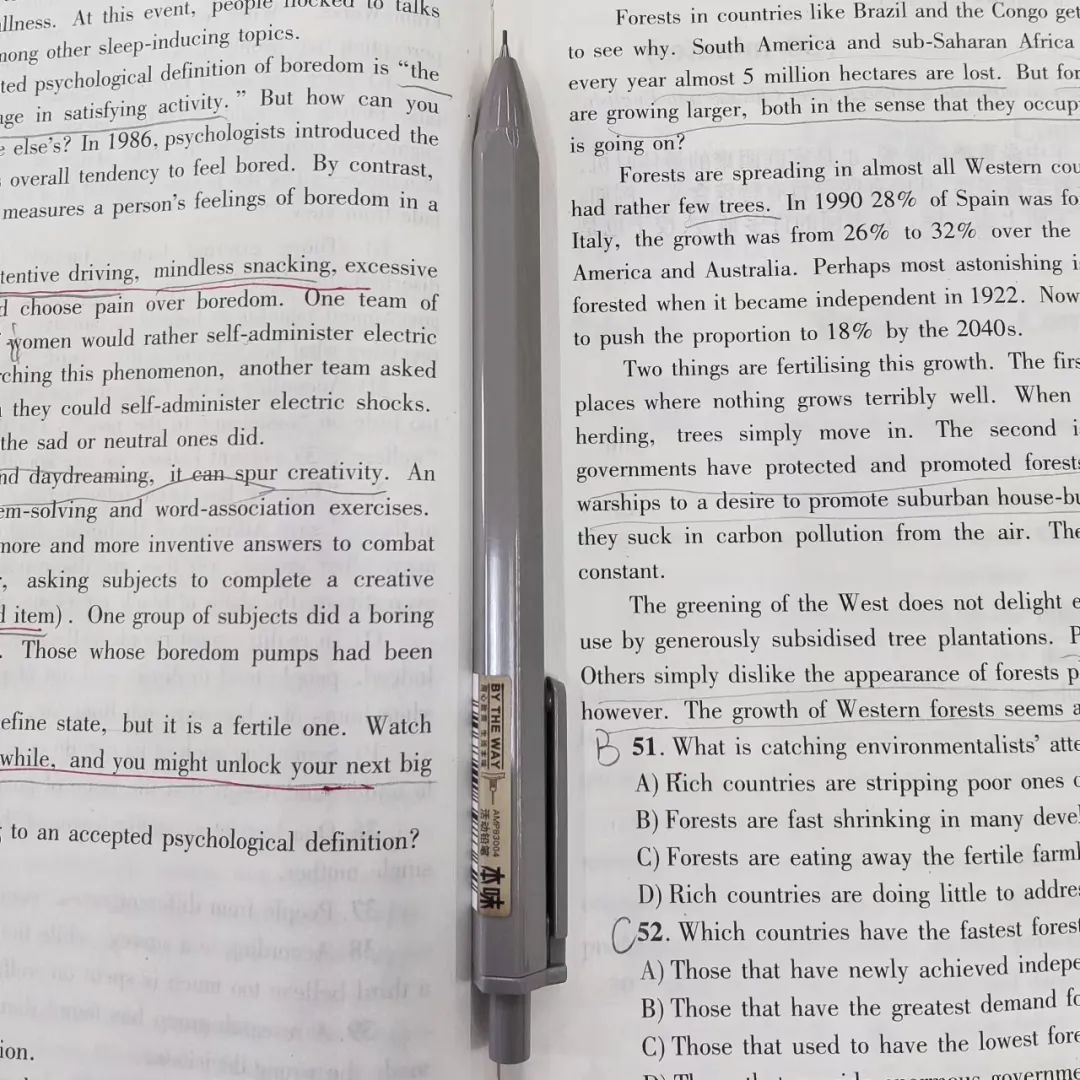 illness. At this event, people flocked to talks
among other sleep-inducing topics.
ted psychological definition of boredom is “the
ge in satisfying activity.” But how can you
else's? In 1986, psychologists introduced the
overall tendency to feel bored. By contrast,
measures a person's feelings of boredom in a
tentive driving, mindless snacking, excessive
d choose pain over boredom. One team of
women would rather self-administer electric
ching this phenomenon, another team asked
they could self-administer electric shocks.
the sad or neutral ones did.
nd daydreaming, it can spur creativity. An
em-solving and word-association exercises.
more and more inventive answers to combat
, asking subjects to complete a creative
d item). One group of subjects did a boring
. Those whose boredom pumps had been
efine state, but it is a fertile one. Watch
while, and you might unlock your next big
to an accepted psychological definition?
ion.
BY THE WAY
AMP83004
活动铅笔
本味
Forests in countries like Brazil and the Congo get
to see why. South America and sub-Saharan Africa
every year almost 5 million hectares are lost. But for
are growing larger, both in the sense that they occup
is going on?
Forests are spreading in almost all Western cou
had rather few trees. In 1990 28% of Spain was fo
Italy, the growth was from 26% to 32% over the
America and Australia. Perhaps most astonishing i
forested when it became independent in 1922. Now
to push the proportion to 18% by the 2040s.
Two things are fertilising this growth. The firs
places where nothing grows terribly well. When
herding, trees simply move in. The second i
governments have protected and promoted forests
warships to a desire to promote suburban house-bu
they suck in carbon pollution from the air. The
constant.
The greening of the West does not delight e
use by generously subsidised tree plantations. P
Others simply dislike the appearance of forests p
however. The growth of Western forests seems a
B 51. What is catching environmentalists' atte
A) Rich countries are stripping poor ones o
B) Forests are fast shrinking in many deve
C) Forests are eating away the fertile farml
D) Rich countries are doing little to addres
C 52. Which countries have the fastest forest
A) Those that have newly achieved indepe
B) Those that have the greatest demand fo
C) Those that used to have the lowest fore